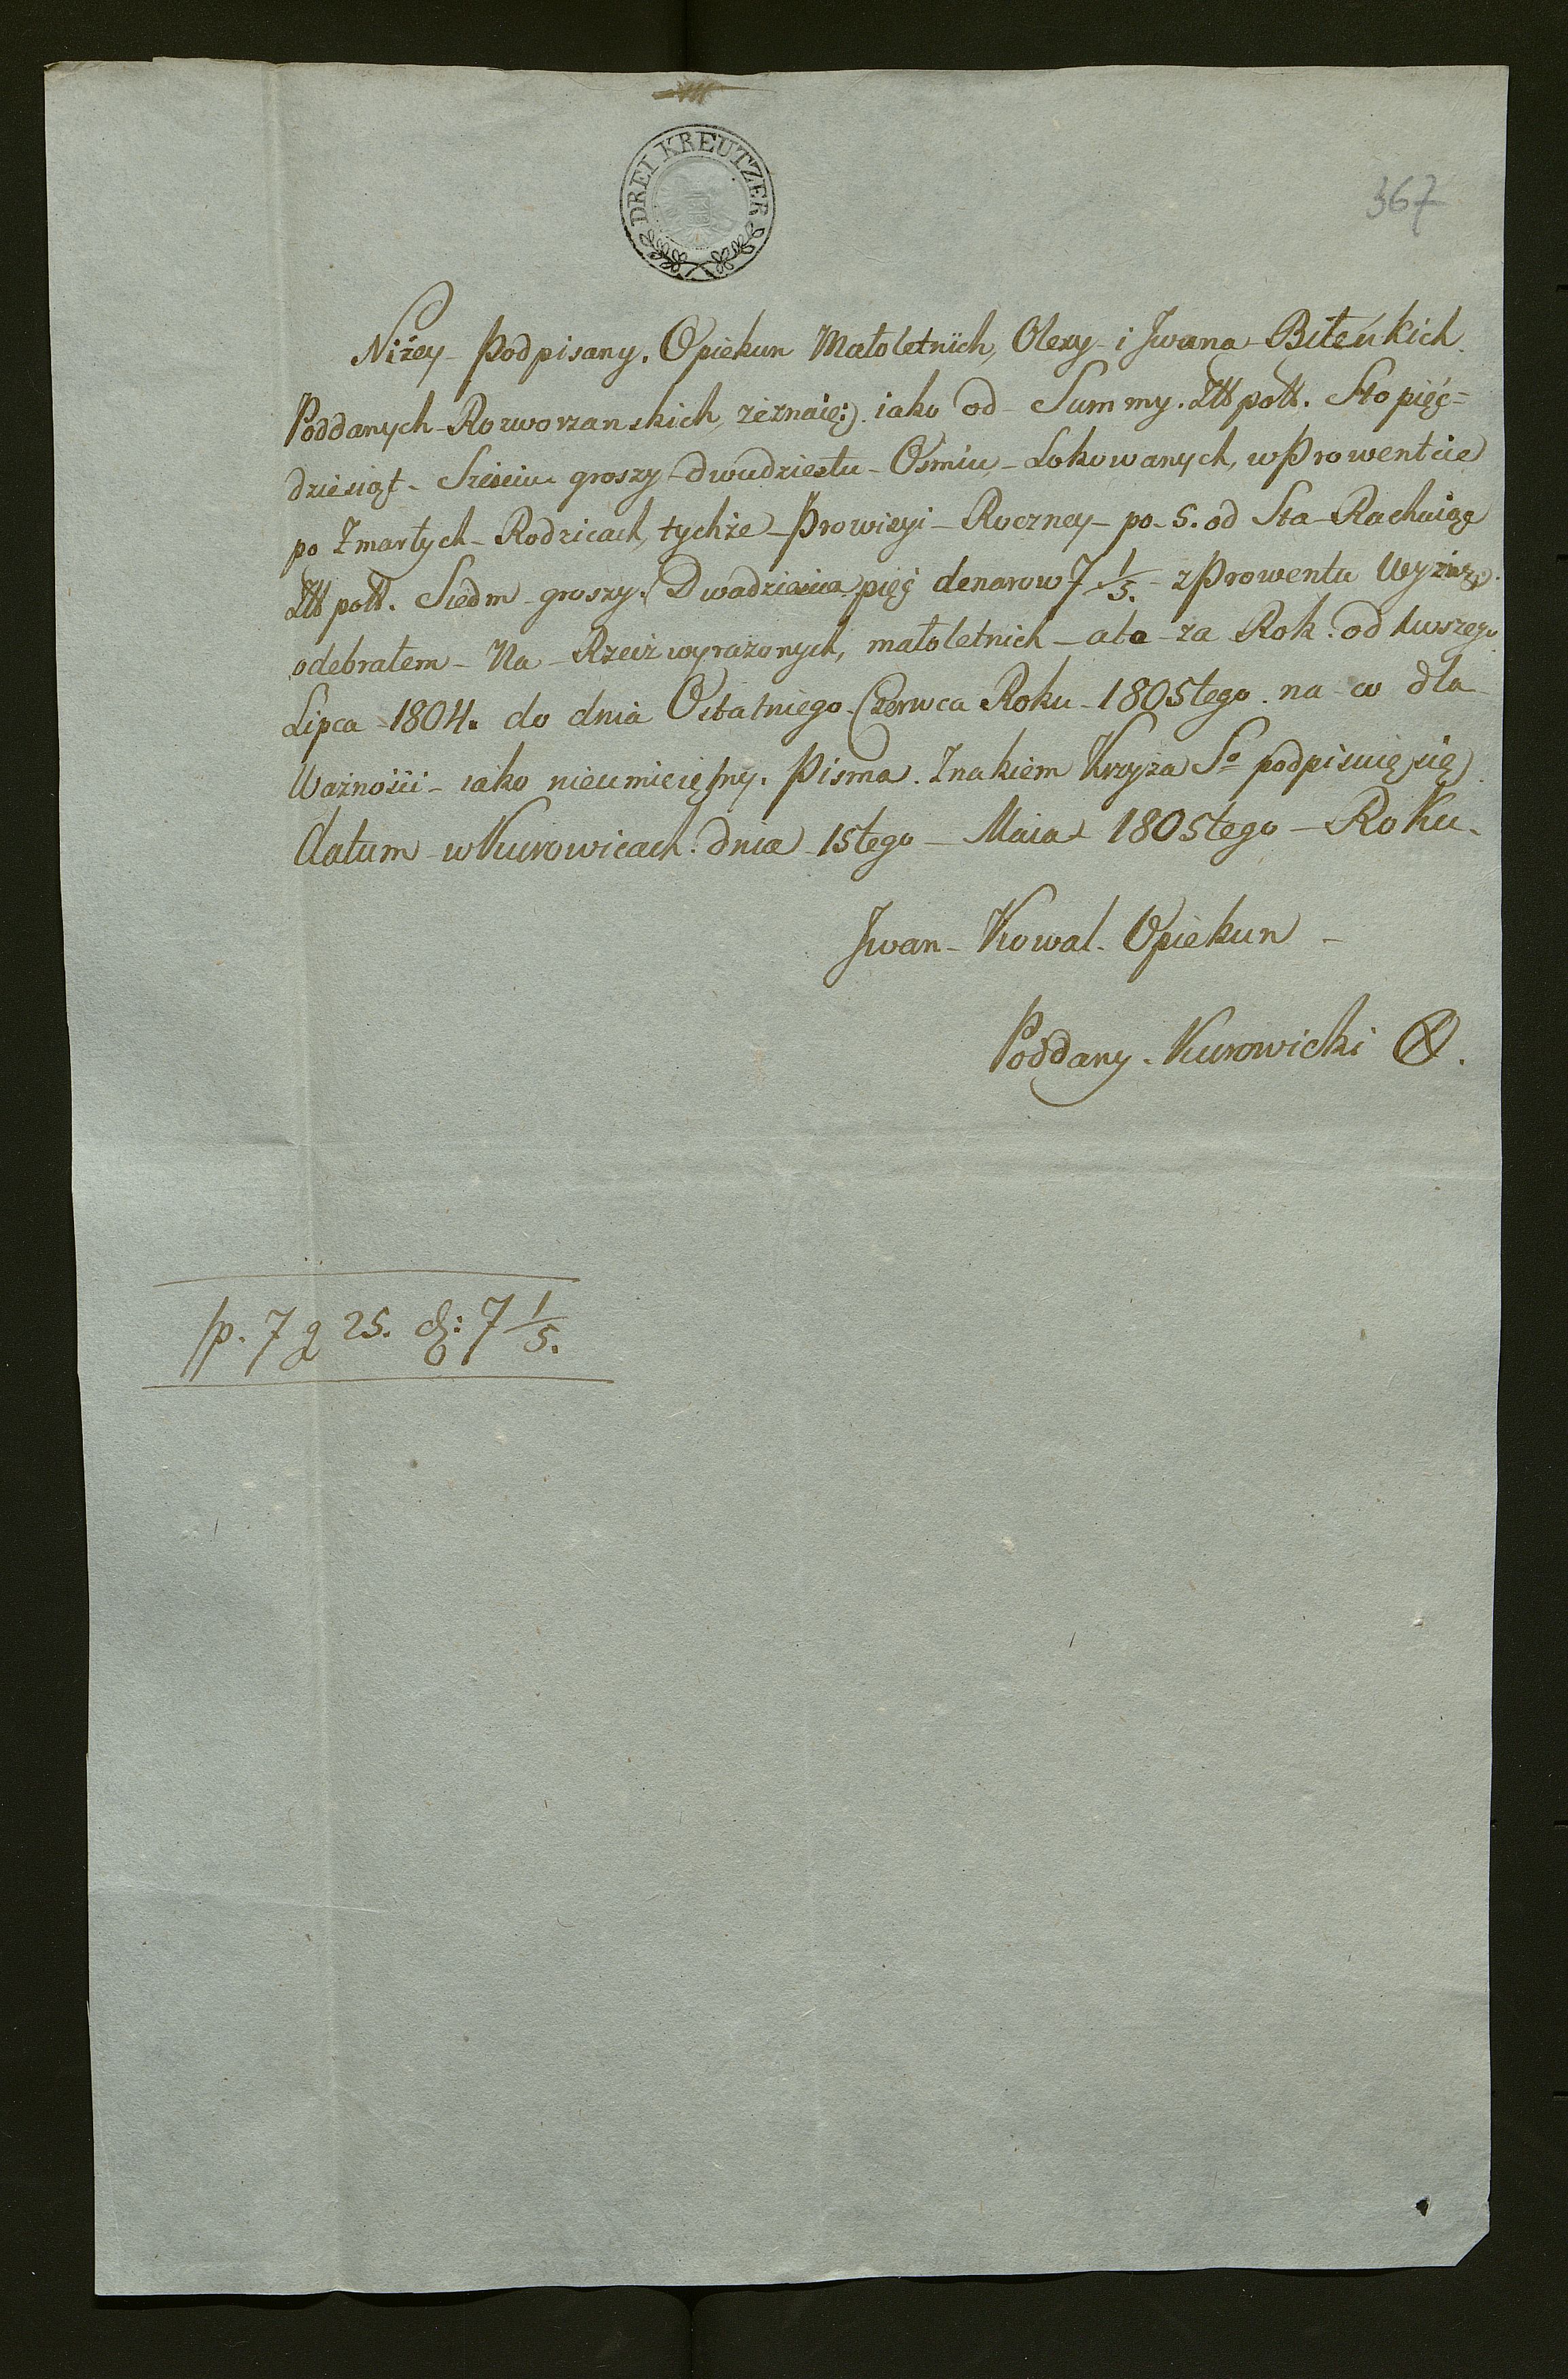 DREI KREUTZER
367
Niżey podpisany. Opiekun Małoletnich, Olexy i Jwana Biłeńkich
Poddanych Rozworzanskich, zeznaię: iako od Summy. Złł poll. Sto pięć=
dziesiąt Sześciu groszy dwudziestu Osmiu Lokowanych, w Prowentcie
po Zmarłych Rodzicach, tychże Prowizyi Roczney po 5. od Sta Rachuiąc
Złł poll. Siedm groszy. Dwadziescia pięć denarow 7 1/5. z Prowentu
odebrałem Na Rzecz wyrażonych, małoletnich ato za Rok od 1wszego
Lipca 1804. do dnia Ostatniego Czerwca Roku 1805tego. na co dla
Ważności iako nieumieiętny. Pisma. Znakiem Krzyża Sº podpisuię się
datum w Kurowicach dnia 15tego Maia 1805tego Roku.
Jwan Kowal Opiekun
Poddany Kurowicki X.
fp. 7 g 25. d: 7 1/5.